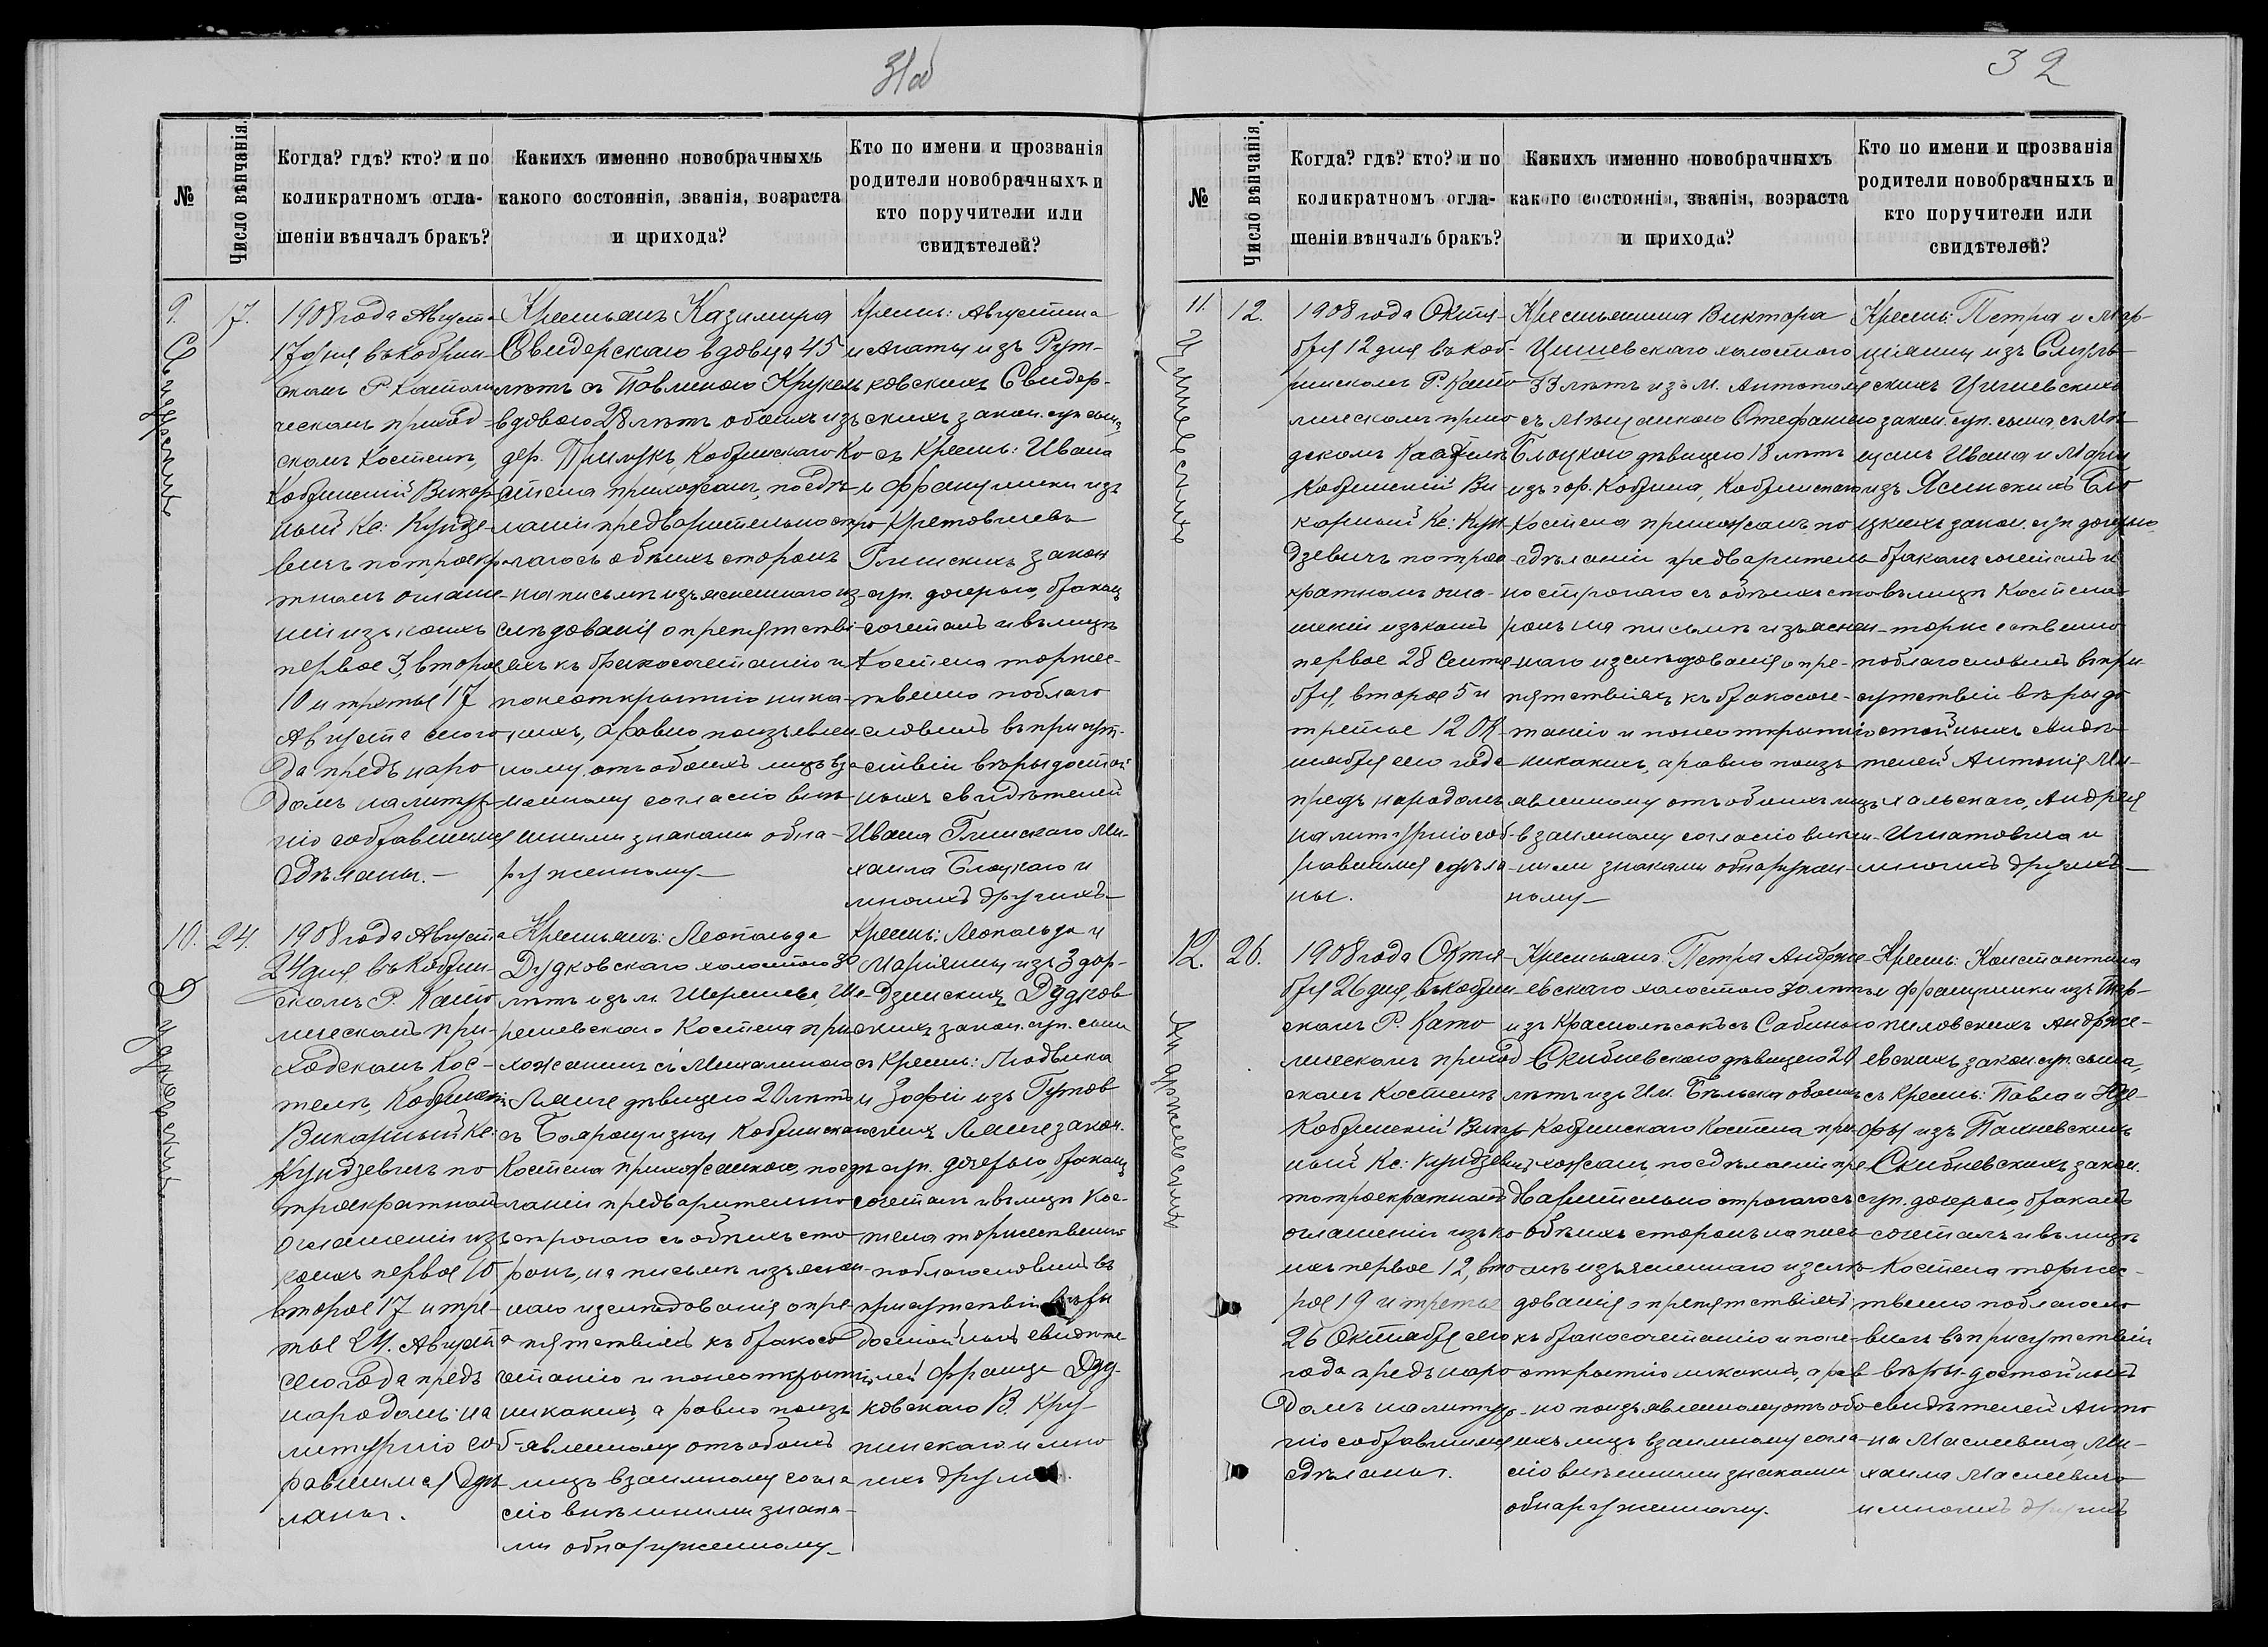 31об
№
Число вѣнчанія.
Когда? гдѣ? кто? и по
коликратномъ огла-
шеніи вѣнчалъ бракъ?
Какихъ именно новобрачныхъ
какого состоянія, званія, возраста
и прихода?
Кто по имени и прозванія
родители новобрачныхъ и
кто поручители или
свидѣтелей?
9.
Свидерскихъ
17.
1908 года Августа
17 дня, въ Кобрин-
скомъ Р. Католи
ческомъ приход-
скомъ Костелѣ,
Кобринскій Викар-
ный Кс: Кундзе-
вичъ по троекра
тномъ оглаше-
ніи изъ коихъ
первое 3, второе
10 и третье 17
Августа сего го
да предъ наро-
домъ на литур-
гію собравшимся
сдѣланы.-
Крестьянъ Казимира
Свидерскаго вдовца 45
лѣтъ съ Павлиною
вдовою 28 лѣтъ обоихъ изъ
дер. Кобринскаго Ко
стела прихожанъ, по сдѣ
ланіи предварительно стро
гаго съ обѣихъ сторонъ
на письмѣ изъясненнаго из-
слѣдованія о препятстві-
яхъ къ бракосочетанію и
по неоткрытію ника-
кихъ, а равно по изъявлен-
ному отъ обоихъ лицъ вза
имному согласію внѣ-
шними знаками обна-
руженному
Крест: Августина
и Агаты изъ Рут-
ковскихъ Свидер-
скихъ закон. суп. сына,
съ Крест: Ивана
и Францишки изъ
Глинскихъ закон
суп. дочерью, бракомъ
сочеталъ и въ лицѣ
Костела торжес-
твенно поблаго
словилъ въ присут-
ствіи вѣры достой
ныхъ свидѣтелей
Ивана Глинскаго Ми-
хаила Блоцкаго и
многихъ другихъ
10.
Дудковскихъ
24.
1908 года Августа
24 дня, въ Кобрин-
скомъ Р. Като
лическомъ при-
ходскомъ Кос-
телѣ, Кобринскій
Викарный Кс:
Кундзевичъ по
троекратномъ
оглашеніи изъ
коихъ первое 10
второе 17 и тре-
тье 24. Августа
сего года предъ
народомъ на
литургію соб-
равшимся сдѣ
ланы.
Крестьянъ: Леопольда
Дудковскаго холостого 30
лѣтъ изъ м. Шерешева, Ше-
решевскаго Костела при
хожанинъ съ Михалиною
Лянге дѣвицею 20 лѣтъ
съ Боярщизны Кобринскаго
Костела прихожанкою, по сдѣ
ланіи предварительно
строгаго съ обѣихъ сто
ронъ, на письмѣ изъяснен-
наго изслѣдованія о пре-
пятствіяхъ къ бракосо
четанію и по неоткрытію
никакихъ, а равно по изъ
явленному отъ обоихъ
лицъ взаимному согла
сію внѣшними знака-
ми обнаруженному
Крест: Леопольда и
Маріянны изъ Здор-
дзинскихъ Дудков
скихъ закон. суп. сына
съ Крест: Людвика
и Зофіи изъ Гутов
скихъ Лянге закон.
суп. дочерью, бракомъ
сочеталъ и въ лицѣ Кос-
тела торжественно
поблагословилъ въ
присутствіи вѣры
достойныхъ свидѣте
лей Франца Дуд-
ковскаго В. Кру-
пинскаго и мно
гихъ другихъ.
32
№
Число вѣнчанія.
Когда? гдѣ? кто? и по
коликратномъ огла-
шеніи вѣнчалъ бракъ?
Какихъ именно новобрачныхъ
какого состояні, званія, возраста
и прихода?
Кто по имени и прозванія
родители новобрачныхъ и
кто поручители или
свидѣтелей?
11.
Цишевскихъ
12.
1908 года Октя-
бря 12 дня въ Коб-
ринскомъ Р. Като
лическомъ прихо
дскомъ Костелѣ
Кобринскій Ви
карный Кс: Кун
дзевичъ по трое
кратномъ огла-
шеніи изъ коихъ
первое 28 Сентя
бря, второе 5 и
третье 12 Ок-
тября сего года
предъ народомъ
на литургію соб-
равшимся сдѣла
ны.
Крестьянина Виктора
Цишевскаго холостого
33 лѣтъ изъ м. Антополя
съ Мѣщанкою Стефаніею
Блоцкою дѣвицею 18 лѣтъ
изъ гор. Кобрина, Кобринскаго
Костела прихожанъ, по
сдѣланіи предваритель
но строгаго съ обѣихъ сто
ронъ на письмѣ изъяснен-
наго изслѣдованія о пре-
пятствіяхъ къ бракосоче-
танію и по неоткрытію
никакихъ, а равно по изъ
явленному отъ обоихъ лицъ
взаимному согласію внѣш-
ними знаками обнаружен-
ному
Крест: Петра и Мар-
ціянны изъ
скихъ Цишевскихъ
закон. суп. сына, съ Мѣ
щанъ Ивана и Маріи
изъ Ясинскихъ Бло
цкихъ закон. суп дочерью
бракомъ сочеталъ и
въ лицѣ Костела
торжественно
поблагословилъ въ при-
сутствіи вѣры до
стойныхъ свидѣ
телей Антонія Ми-
хальскаго, Андрея
Игнатовича и
многихъ другихъ
12.
Андржеевскихъ
26.
1908 года Октя-
бря 26 дня, въ Кобрин
скомъ Р. Като
лическомъ приход
скомъ Костелѣ
Кобринскій Викар
ный Кс: Кундзевичъ
по троекратномъ
оглашеніи изъ ко
ихъ первое 12, вто
рое 19 и третье
26 Октября сего
года предъ наро
домъ на литур-
гію собравшимся
сдѣланы.
Крестьянъ Петра Андрже-
евскаго холостого 30 лѣтъ
изъ Краснолѣсокъ съ Сабиною
Скибневскою дѣвицею 20
лѣтъ изъ Им. Бѣльска обоихъ
Кобринскаго Костела при-
хожанъ, по сдѣланіи пре
дварительно строгаго съ
обѣихъ сторонъ на пись
мѣ изъясненнаго изслѣ
дованія о препятствіяхъ
къ бракосочетанію и по не-
открытію никакихъ, а рав
но по изъявленному отъ обо
ихъ лицъ взаимному согла
сію внѣшними знаками
обнаруженному.
Крест: Константина
и Францишки изъ
Андрже-
евскихъ закон. суп. сына,
съ Крест: Павла и Юзе-
фы изъ Пахневскихъ
Скибневскихъ закон.
суп. дочерью, бракомъ
сочеталъ и въ лицѣ
Костела торжес-
твенно поблагосло
вилъ въ присутствіи
вѣры достойныхъ
свидѣтелей Анто
на Маслевича, Ми-
хаила Маслевича
и многихъ другихъ